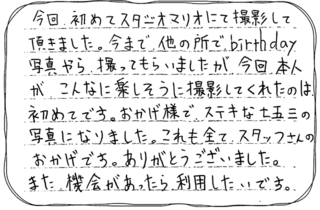 今回、初めてスタジオマリオにて撮影して
頂きました。今まで、他の所で、birthday
写真やら、撮ってもらいましたが、今回、本人
が、こんなに楽しそうに撮影してくれたのは、
初めてです。おかげ様で、ステキな七五三の
写真になりました。これも全て、スタッフさんの
おかげです。ありがとうございました。
また、機会があったら、利用したいです。